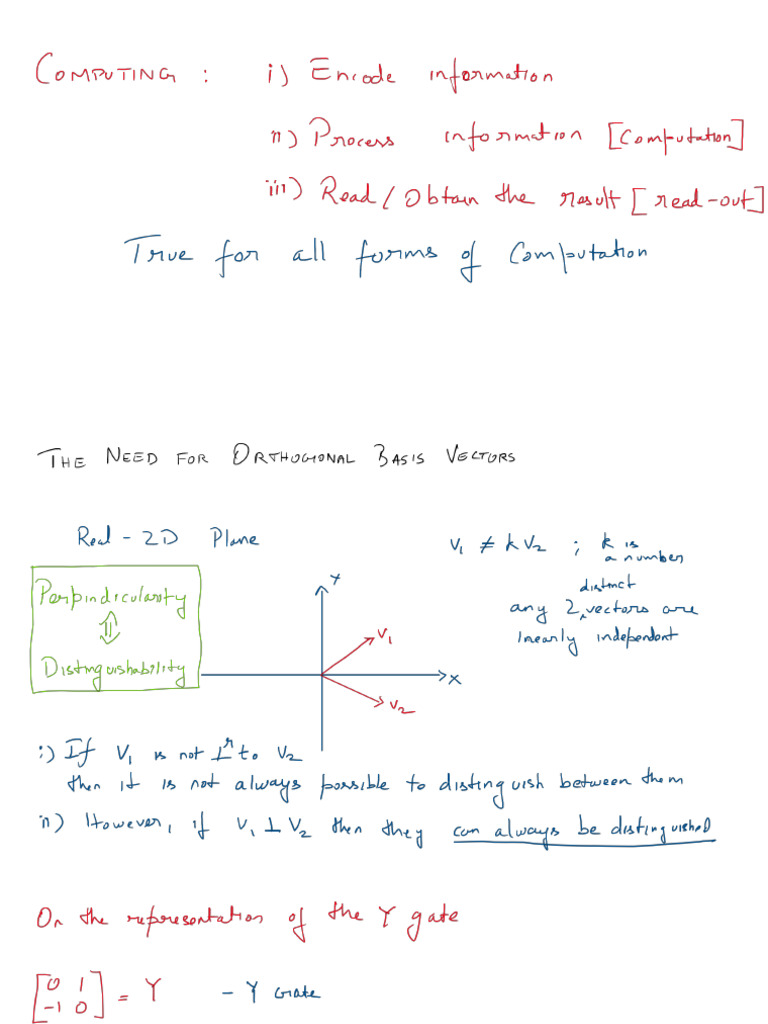 COMPUTING : i) Encode information
ii) Process information [Computation]
iii) Read / Obtain the result [read-out]
True for all forms of Computation
THE NEED FOR ORTHOGIONAL BASIS VECTORS
Real - 2D Plane
V₁ ≠ k V₂ ; k is
a number
distinct
any 2 vectors are
linearly independent
Perpindicularity
⇕
Distinguishability
Y
V₁
X
V₂
i) If V₁ is not ⊥ʳ to V₂
then it is not always possible to distinguish between them
ii) However, if V₁ ⊥ V₂ then they can always be distinguished
On the representation of the Y gate
[0 1
-1 0] = Y - Y Gate